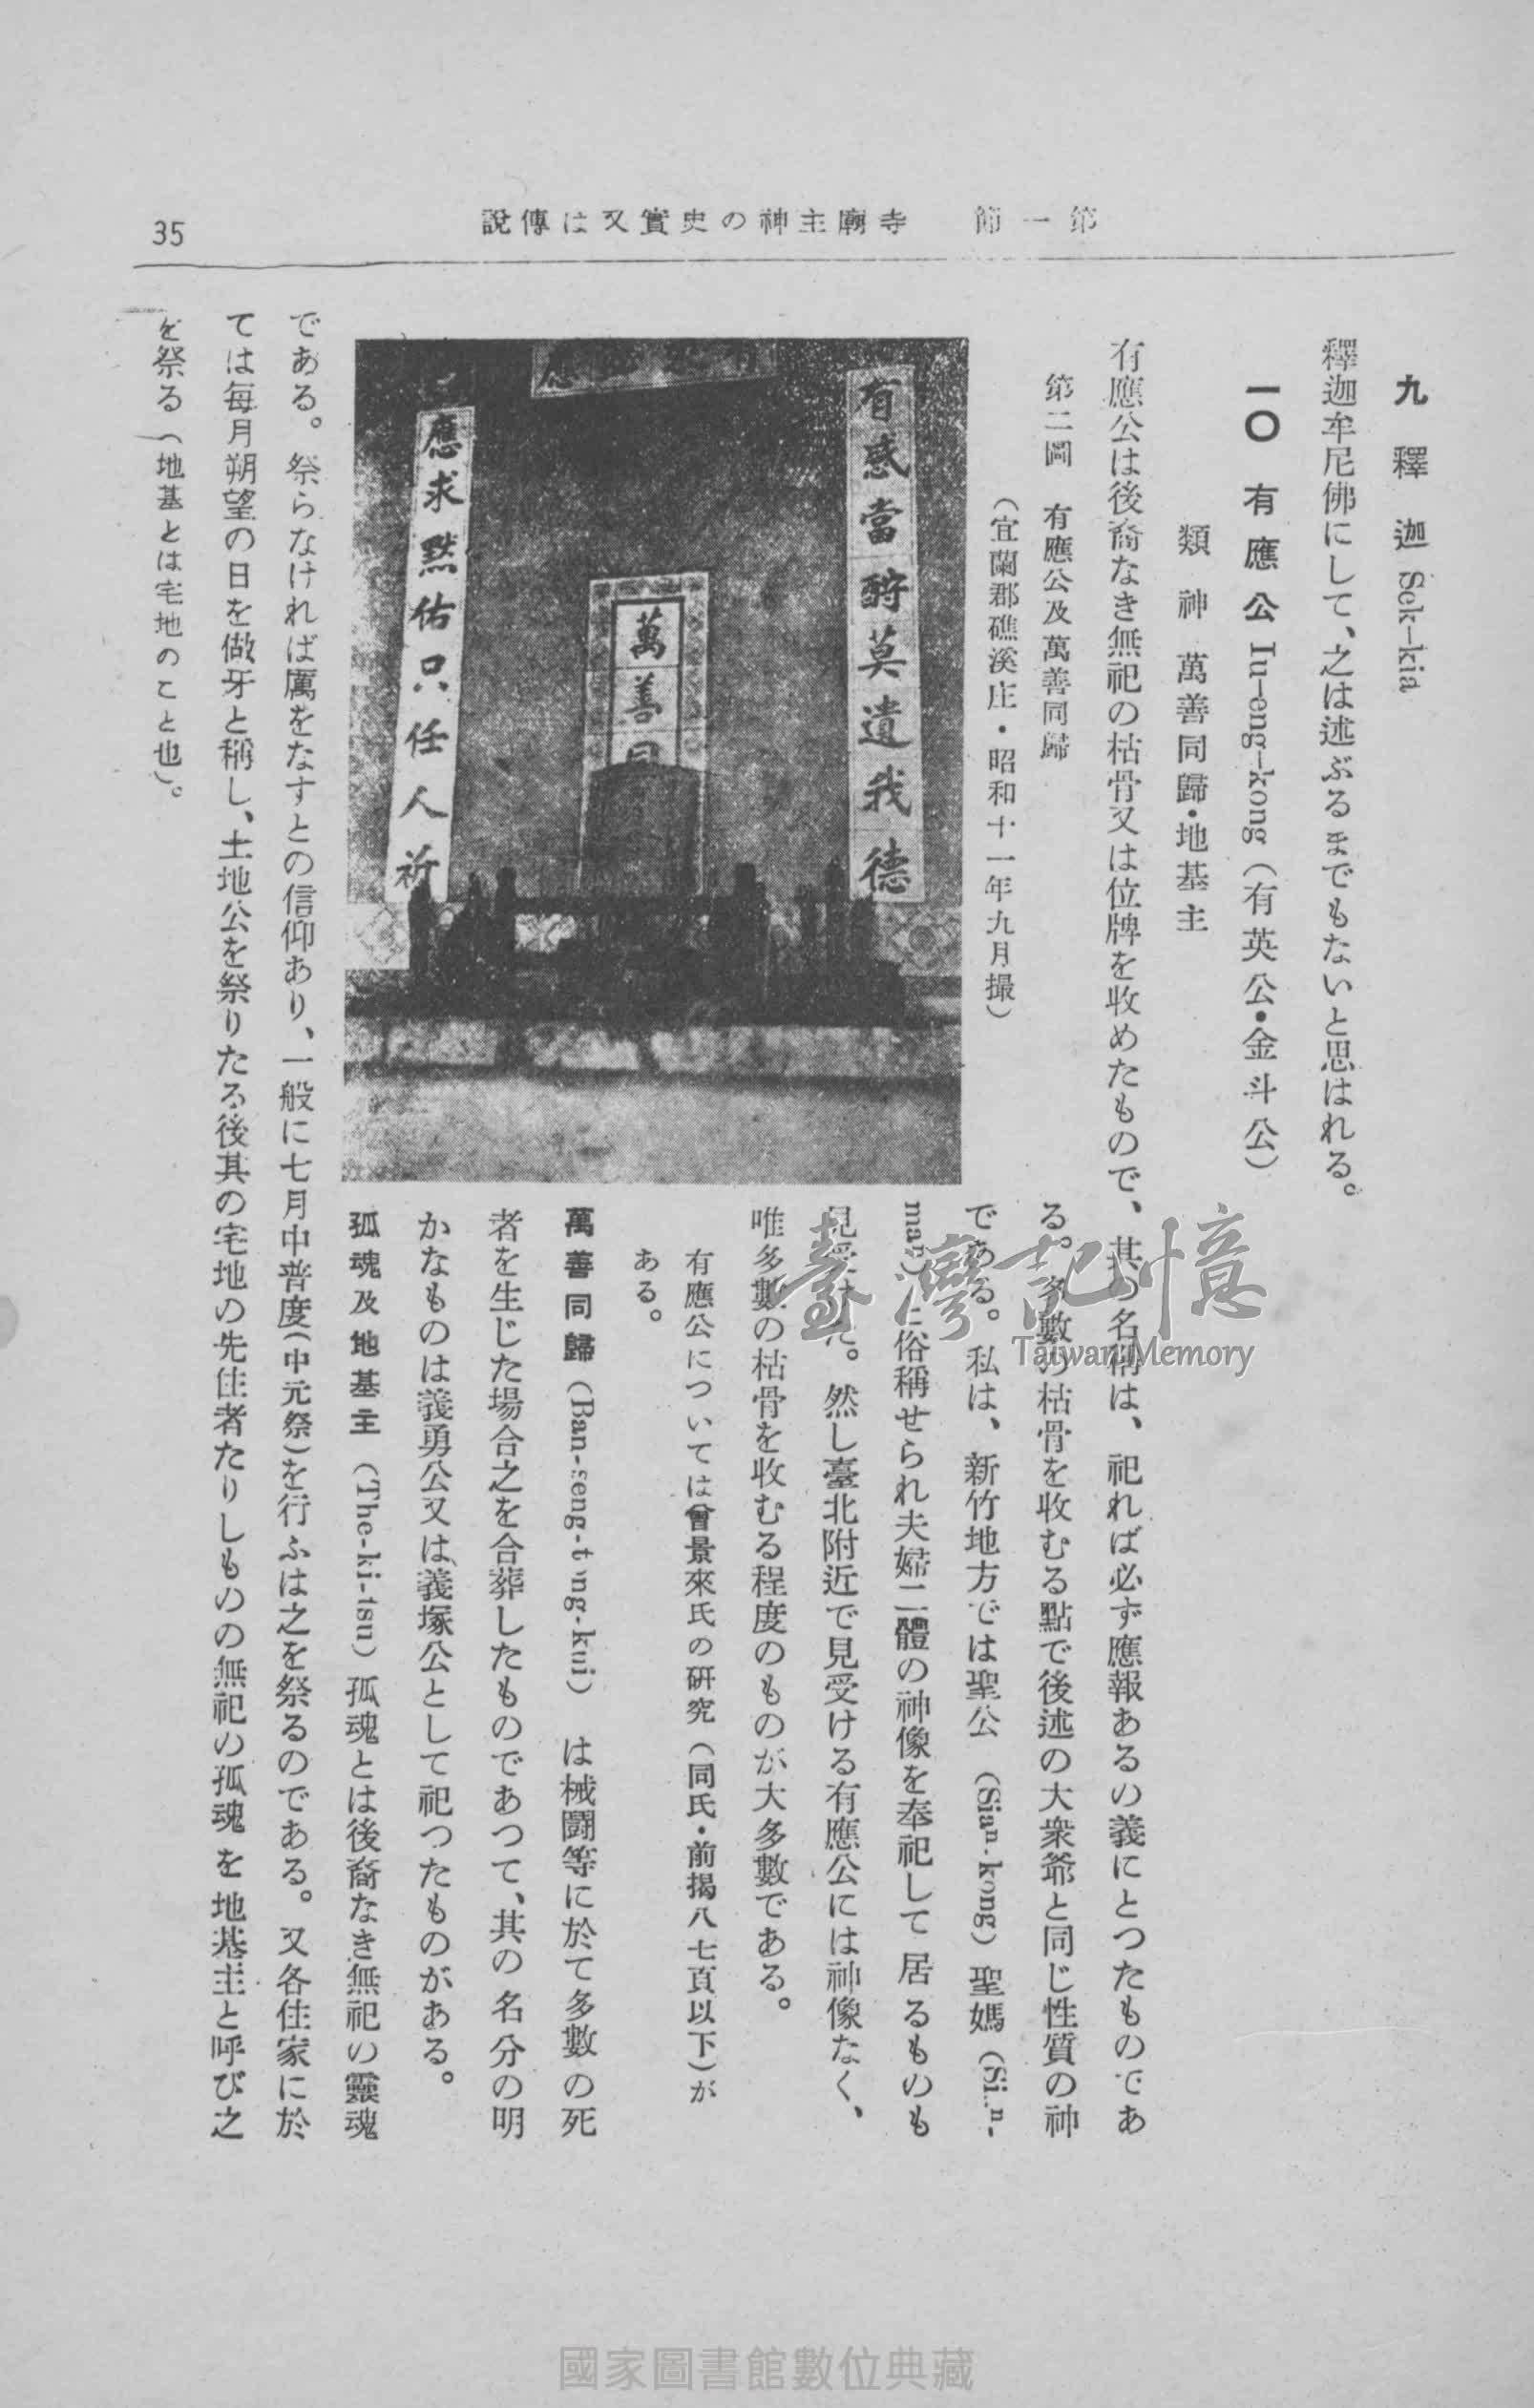 35
第一節　寺廟主神の史實又は傳說
九　釋　迦 Sek-kia
釋迦牟尼佛にして、之は述ぶるまでもないと思はれる。
一〇　有應公 Iu-eng-kong（有英公・金斗公）
類神　萬善同歸・地基主
有應公は後裔なき無祀の枯骨又は位牌を收めたもので、其の名稱は、祀れば必ず應報あるの義にとつたものであ
る。多數の枯骨を收むる點で後述の大衆爺と同じ性質の神
である。私は、新竹地方では聖公（Siaⁿ-kong）聖媽
俗稱せられ夫婦二體の神像を奉祀して居るものも
見受けた。然し臺北附近で見受ける有應公には神像なく、
唯多數の枯骨を收むる程度のものが大多數である。
有應公については曾景來氏の研究（同氏・前揭八七頁以下）が
ある。
第二圖　有應公及萬善同歸
（宜蘭郡礁溪庄・昭和十一年九月撮）
有求必應
有惑當酹莫遺我德
萬善同
應求黙佑只任人祈
萬善同歸（Ban-seng-tong-kui）は械鬪等に於て多數の死
者を生じた場合之を合葬したものであつて、其の名分の明
かなものは義勇公又は義塚公として祀つたものがある。
孤魂及地基主（The-ki-tsu）孤魂とは後裔なき無祀の靈魂
である。祭らなければ厲をなすとの信仰あり、一般に七月中普度（中元祭）を行ふは之を祭るのである。又各住家に於
ては每月朔望の日を做牙と稱し、土地公を祭りたる後其の宅地の先住者たりしものの無祀の孤魂を地基主と呼び之
を祭る（地基とは宅地のこと也）。
臺灣記憶
Taiwan Memory
國家圖書館數位典藏